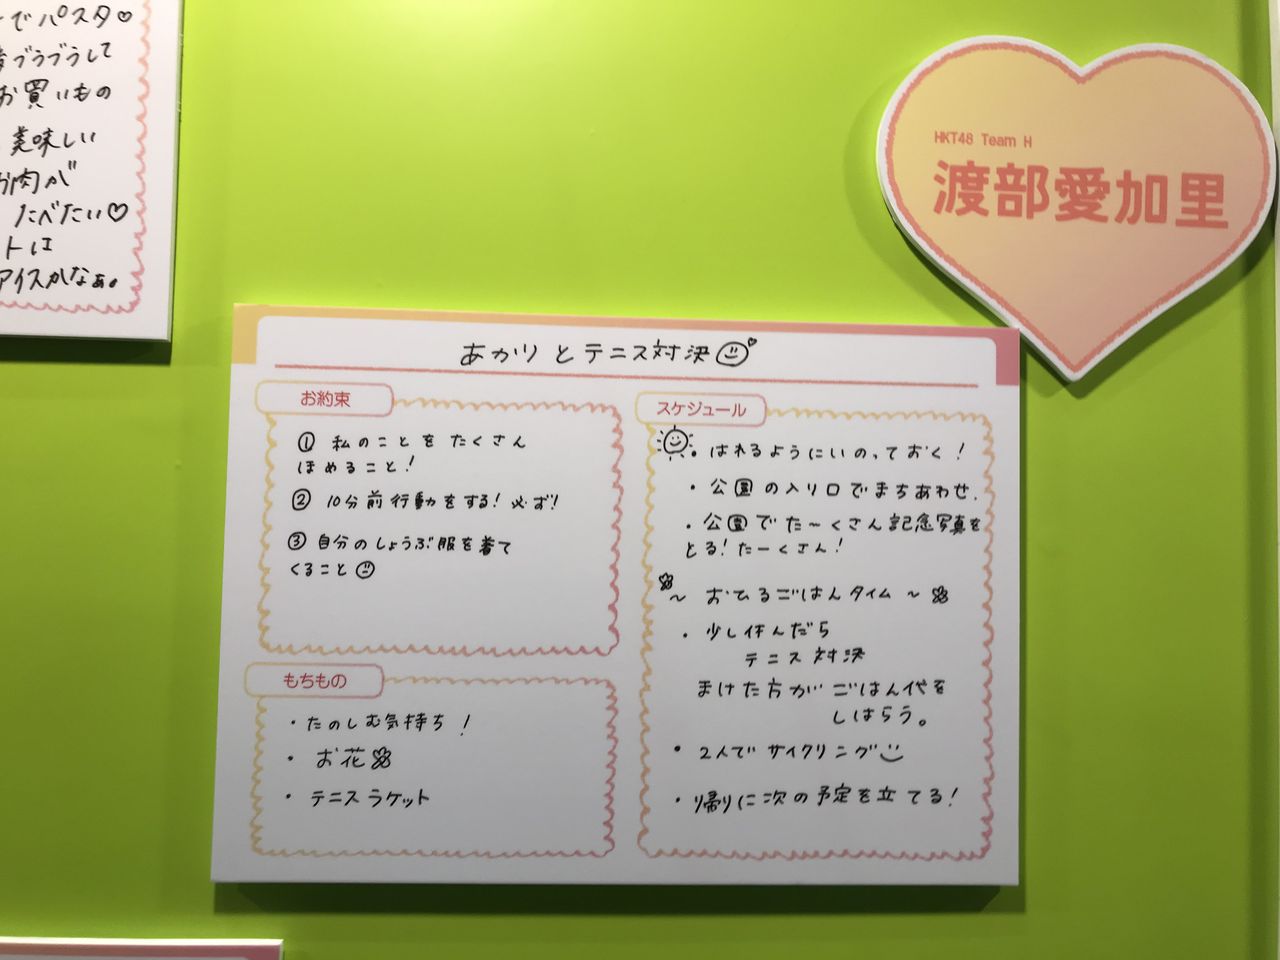 でパスタ♡
ぶうぶうして
お買いもの
美味しい
お肉が
たべたい♡
トは
アイスかなぁ。
HKT48 Team H
渡部愛加里
あかりとテニス対決
お約束
① 私のことをたくさん
ほめること!
② 10分前行動をする!必ず!
③ 自分のしょうぶ服を着て
くること
もちもの
・たのしむ気持ち!
・お花
・テニスラケット
スケジュール
・はれるようにいのっておく!
・公園の入り口でまちあわせ.
・公園でた〜くさん記念写真を
とる!たーくさん!
〜 おひるごはんタイム 〜
・少し休んだら
テニス対決
まけた方がごはん代を
しはらう。
・2人でサイクリング
・帰りに次の予定を立てる!